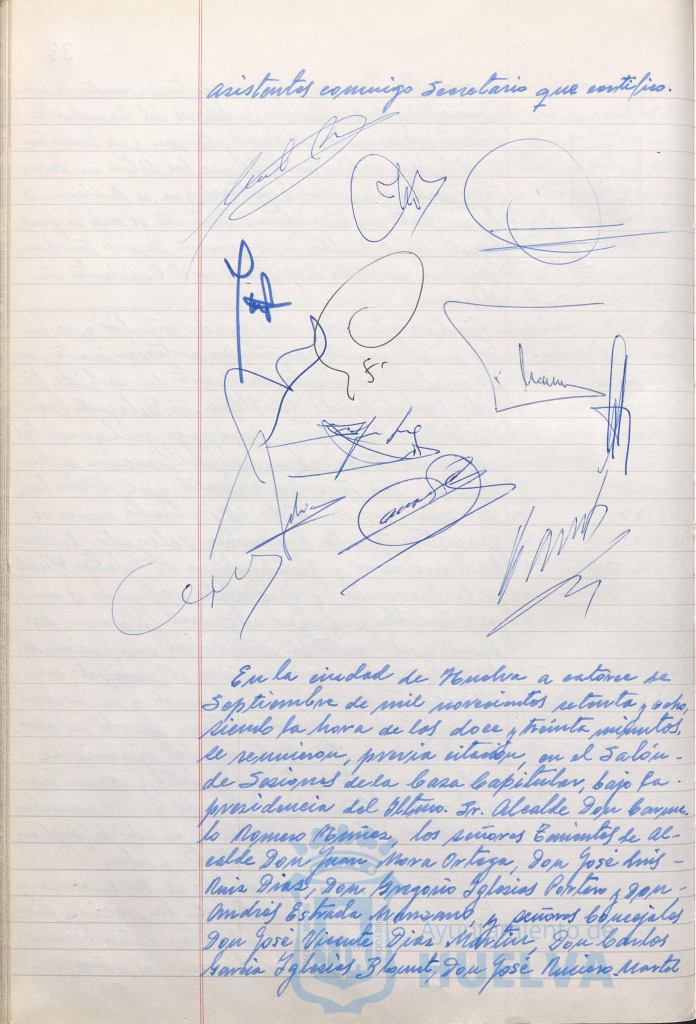 asistentes conmigo Secretario que certifico.
En la ciudad de Huelva a catorce de
Septiembre de mil novecientos setenta y ocho,
siendo la hora de las doce y treinta minutos,
se reunieron, previa citación, en el Salón-
de Sesiones de la Casa Capitular, bajo la
presidencia del Iltmo. Sr. Alcalde Don
lo Romero Núñez, los señores Tenientes de Al-
calde Don Juan Mora Ortega, Don José Luis-
Ruiz Díaz, Don Gregorio Iglesias Portero y Don-
Andrés Estrada Manzano y señores Concejales
Don José Vicente Díaz Martín, Don Carlos
García Iglesias Don José Martel
Ayuntamiento de
HUELVA